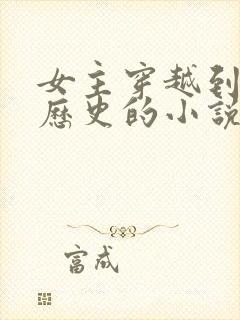 女主穿越到
歷史的小說
富成